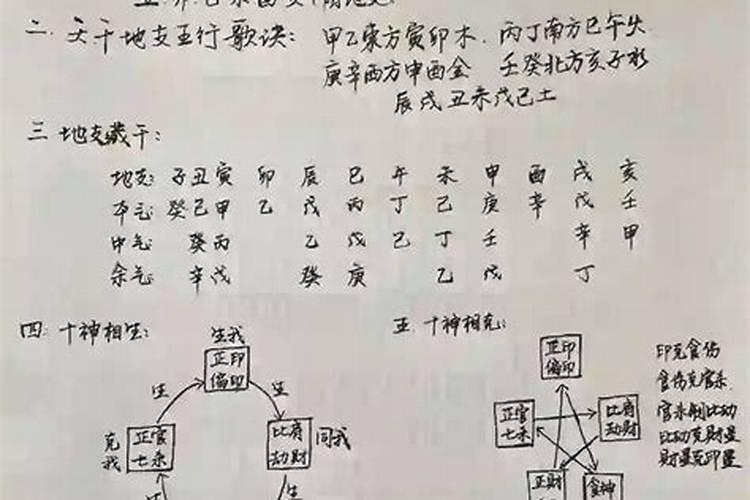 二、天干地支五行歌诀: 甲乙东方寅卯木、丙丁南方巳午火
庚辛西方申酉金 壬癸北方亥子水
辰戌丑未戊己土
三 地支藏干:
地支: 子 丑 寅 卯 辰 巳 午 未 申 酉 戌 亥
本气: 癸 己 甲 乙 戊 丙 丁 己 庚 辛 戊 壬
中气: 癸 丙 乙 戊 己 丁 壬 辛 甲
余气: 辛 戊 癸 庚 乙 戊 丁
四、十神相生:
生我
正印
偏印
生
生
克我
正官
七杀
比肩
劫财
同我
生
生
五、十神相克:
正印
偏印
正官
七杀
比肩
劫财
正财
食神
印克食伤
食伤克官杀
官杀制比劫
比劫克财星
财星克印星